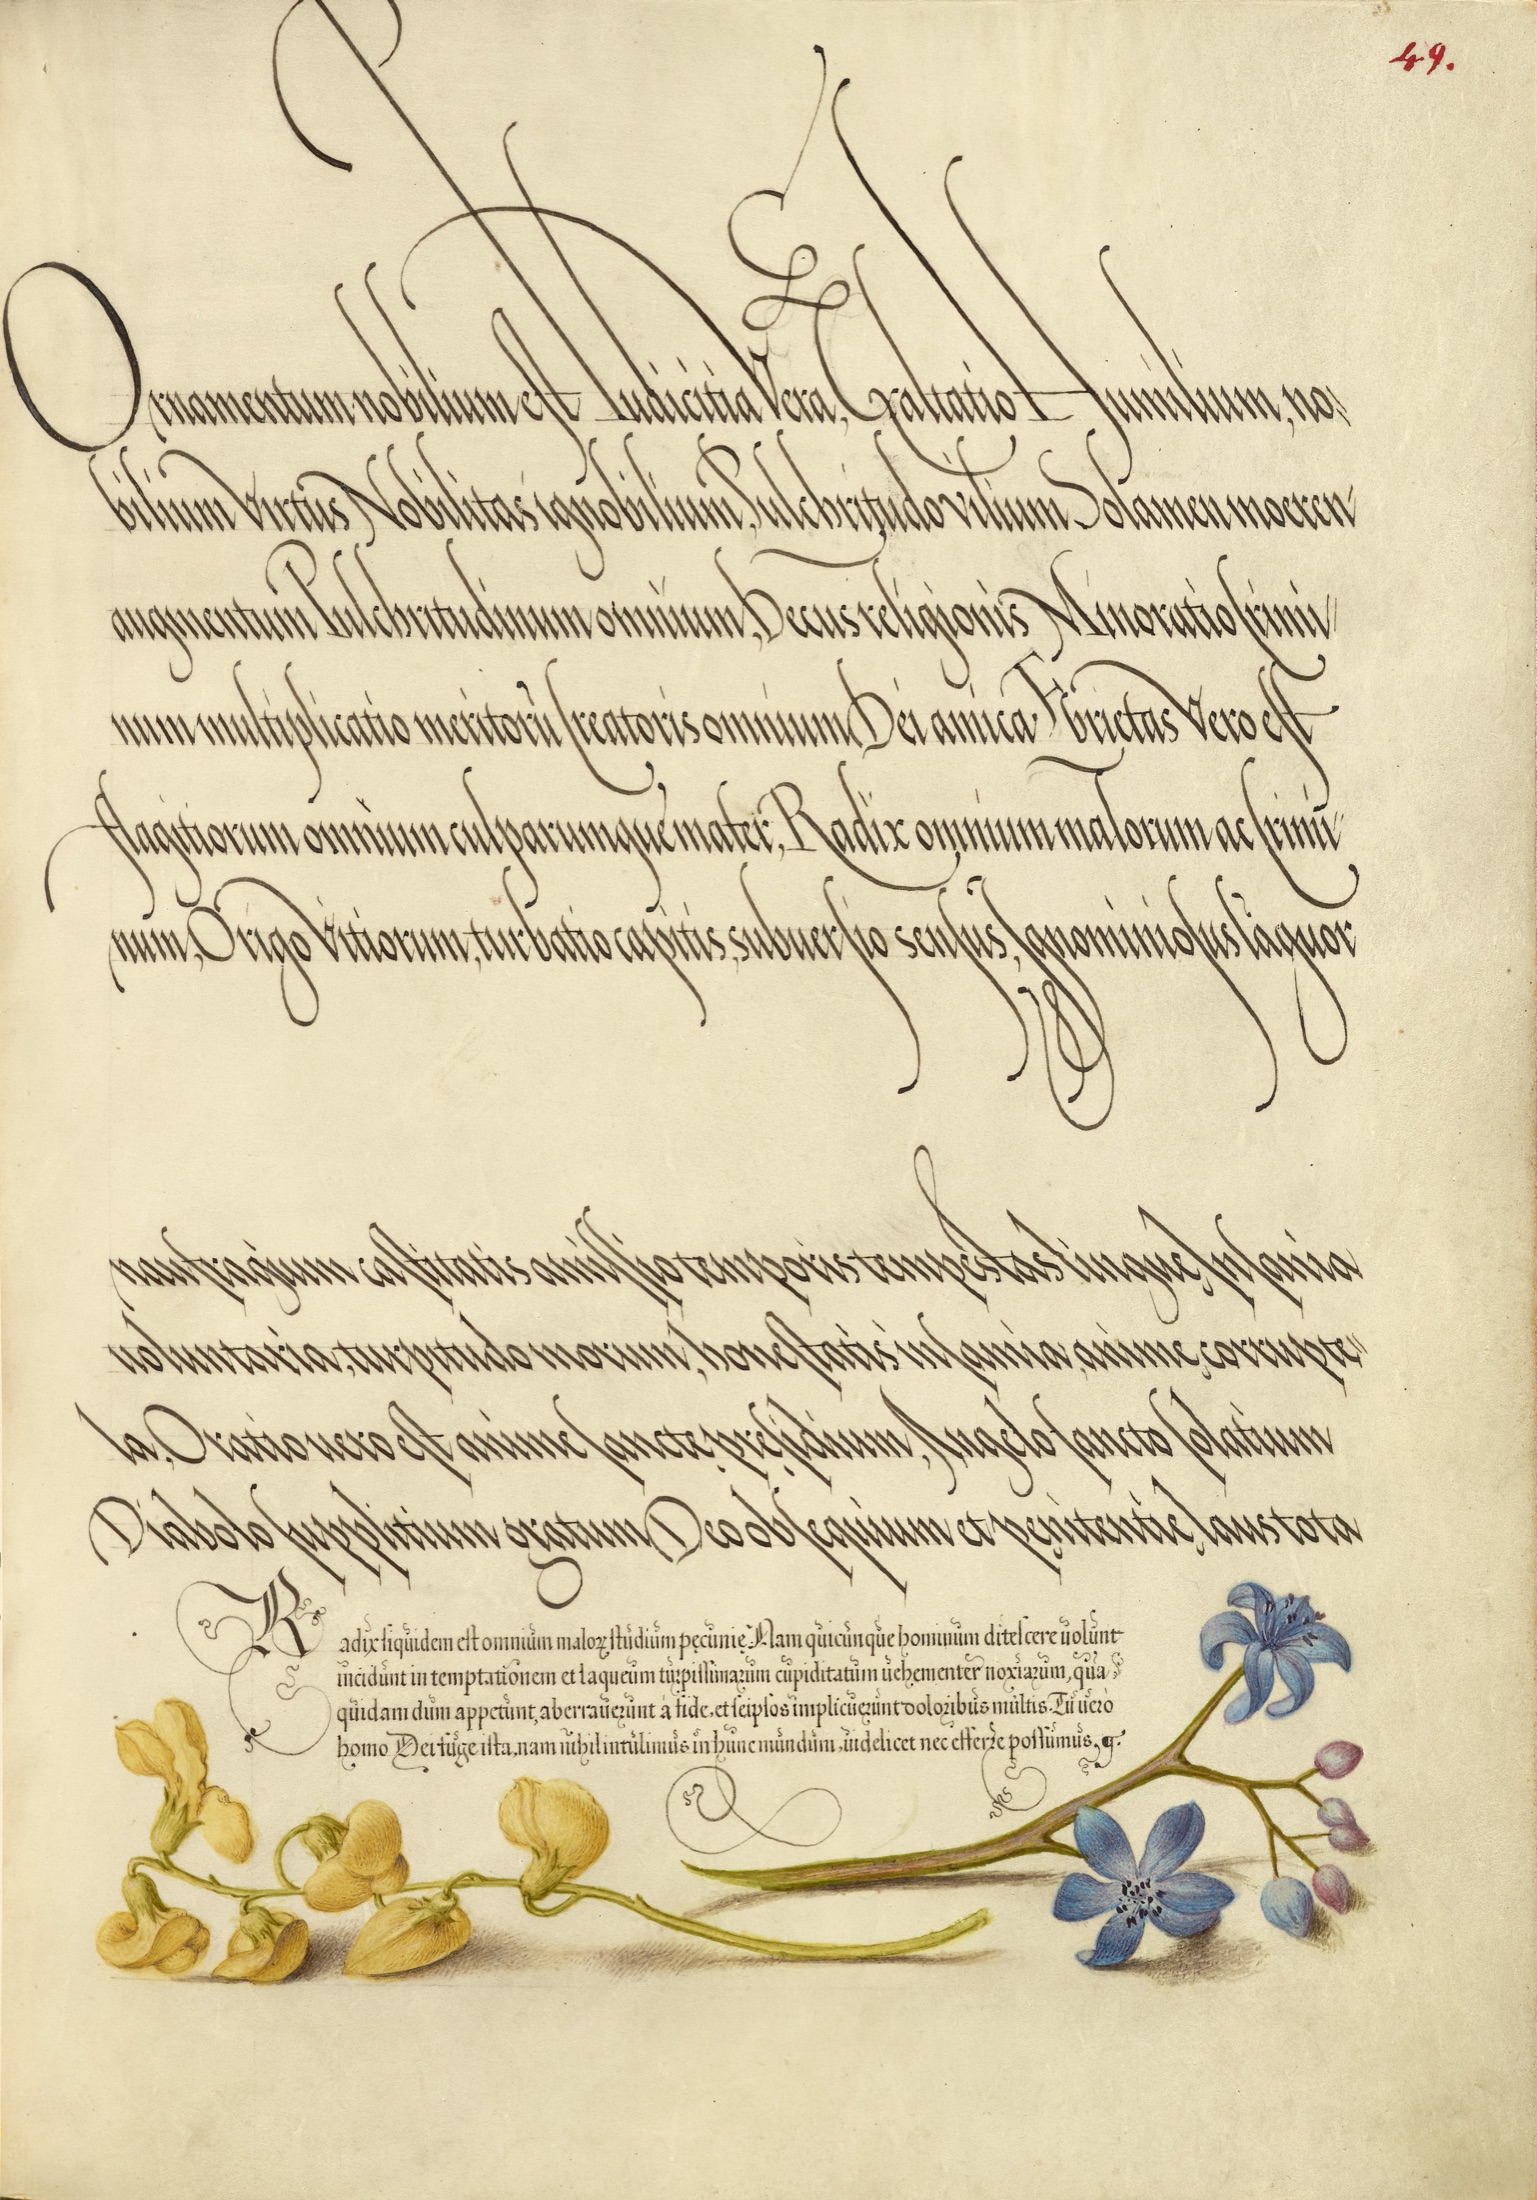 49.
Ornamentum nobilium est Pudicitia Vera, Exaltatio Humilium, no,
bilium Virtus Nobilitas ignobilium, Pulchritudo vilium Solamen moeren
augmentum Pulchritudinum omnium, Decus religionis Minoratio Crimi,
num multiplicatio meritorũ Creatoris omnium Dei amica. Ebrietas Vero est
flagitiorum omnium culparumque mater, Radix omnium malorum ac Crimi,
num, Origo Vitiorum, turbatio capitis, subuersio sensus, Ignominiosus lãguor
naufragium castitatis amissio temporis tempestas linguę, Insania
uoluntaria, turpitudo morum, honestatis insamia, animę corrupte,
la, Oratio uero est anime sanctę pręsidium, Angelo sancto solatium
Diabolo supplitium gratum Deo obsequium et pęnitentię laus tota
Radix siquidem est omnium maloꝝ studium pęcunię. Nam quicunque hominum ditescere uolunt
incidunt in temptationem et laqueum turpissimarum cupiditatum uehementer noxiarum, qua,
quidam dum appetunt, aberrauerunt à fide, et seipsos implicuerunt doloribus multis. Tu uero
homo Dei fuge ista, nam nihil intulimus in hunc mundum, uidelicet nec efferre possumus, q.